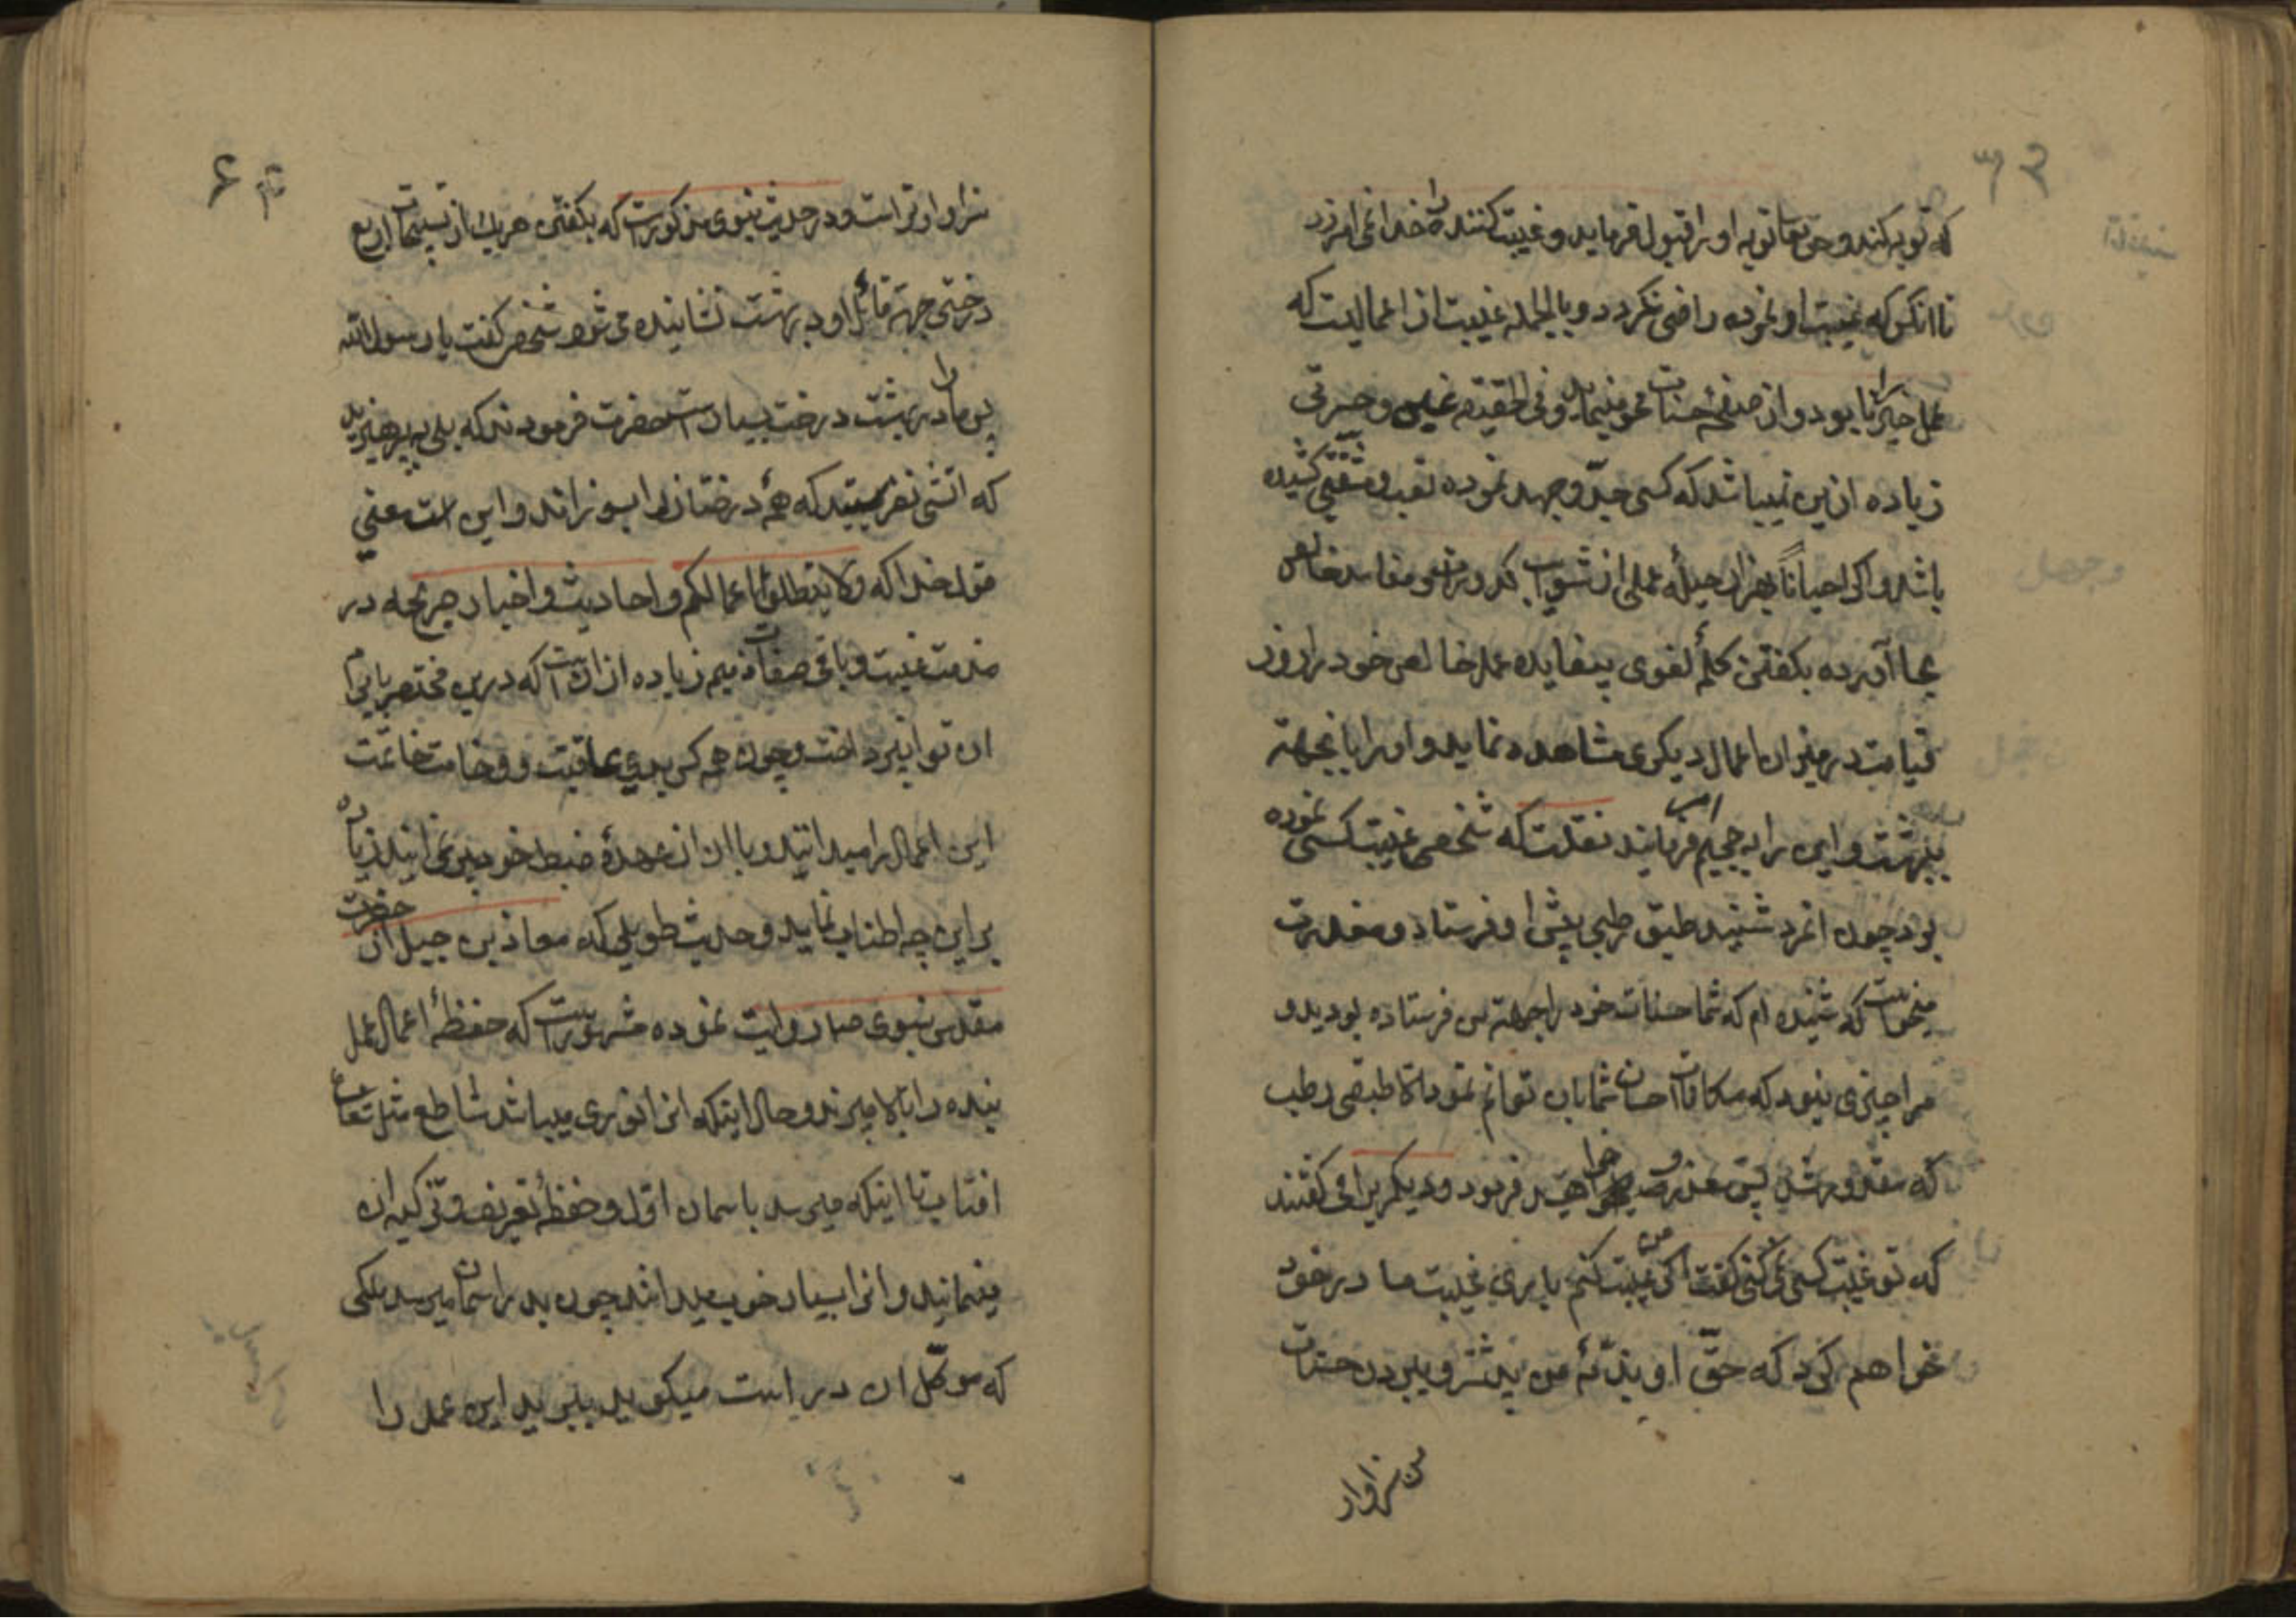 ۶۳
که توبه کنند و حق تعا توبه او را قبول فرماید و غیبت کننده را خدا نمی امرزد
تا انکس که غیبت او نموده راضی نکردد و بالجمله غیبت از اعمالیست که
عمل خیر را نابود و از صفحهٔ حسنات محو مینماید و فی الحقیقه غبن و حسرتی
زیاده ازین نمیباشد که کسی جدّ و جهد نموده تعب و مشقتی کشیده
باشد و اکر احیاناً بهزار حیله عملی از شوایب کدورت و مفاسد خالص
بجا آورده بکفتن کلمهٔ لغوی بیفایده عمل خالص خود را روز
قیامت در میزان اعمال دیکری مشاهده نماید و او را بانجهته
ببهشت و این را به جحیم امر فرمایند نقلست که شخصی غیبت کسی نموده
بود چون انمرد شنید طبق رطبی پیش او فرستاد و معذرت
میخواست که شنیده ام که شما حسنات خود را جهته من فرستاده بودید و
مرا چیزی نبود که مکافات احسان شما بان توانم نمود الا طبقی رطب
که مقدور شد پس معذور خواهید فرمود و دیکریرا می کفتند
که تو غیبت کسی نمی کنی کفت اکر من غیبت کنم باری غیبت مادر خود
خواهم کرد که حقّ او بذمّهٔ من بیشتر و بردن حسنات
من سزاوار
۶۴
سزاوارتر است و در حدیث نبوی مذکورست که بکفتن هریک از تسبیحات اربع
درختی جهة قائل او در بهشت نشانیده می شود شخصی کفت یا رسول الله
پس ما را در بهشت درخت بسیار است حضرت فرمودند که بلی بپرهیزید
که اتشی نفرستید که همهٔ درختان را بسوزاند و این است معنی
قول خدا که ولا تبطلوا اعمالکم و احادیث و اخبار صریحه در
مذمت غیبت و باقی صفات ذمیم زیاده از انست که درین مختصر بایراد
ان توان پرداخت و چون همه کس بدی عاقبت و وخامت خاتمت
این اعمال را میدانند و با ان از عهدهٔ ضبط خود بر نمی ایند زیاده
بر این چه اطناب نماید و حدیث طویلی که معاذ بن جبل از حضرت
مقدس نبوی صلم روایت نموده مشهورست که حفظهٔ اعمال عمل
بنده را بالا میبرند و حال اینکه انرا نوری میباشد ساطع مثل شعاع
افتاب تا اینکه میرسد باسمان اول و حفظه تعریف و تزکیه ان
مینمایند و انرا بسیار خوب میدانند چون بدر اسمان میرسد ملکی
که موکّل ان در است میکوید ببرید این عمل را